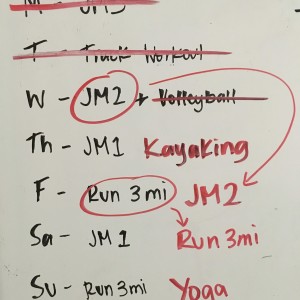 M - JM3
T - Track Workout
W - JM2 + Volleyball
Th - JM1 Kayaking
F - Run 3 mi JM2
Sa - JM1 Run 3mi
Su - Run 3mi Yoga